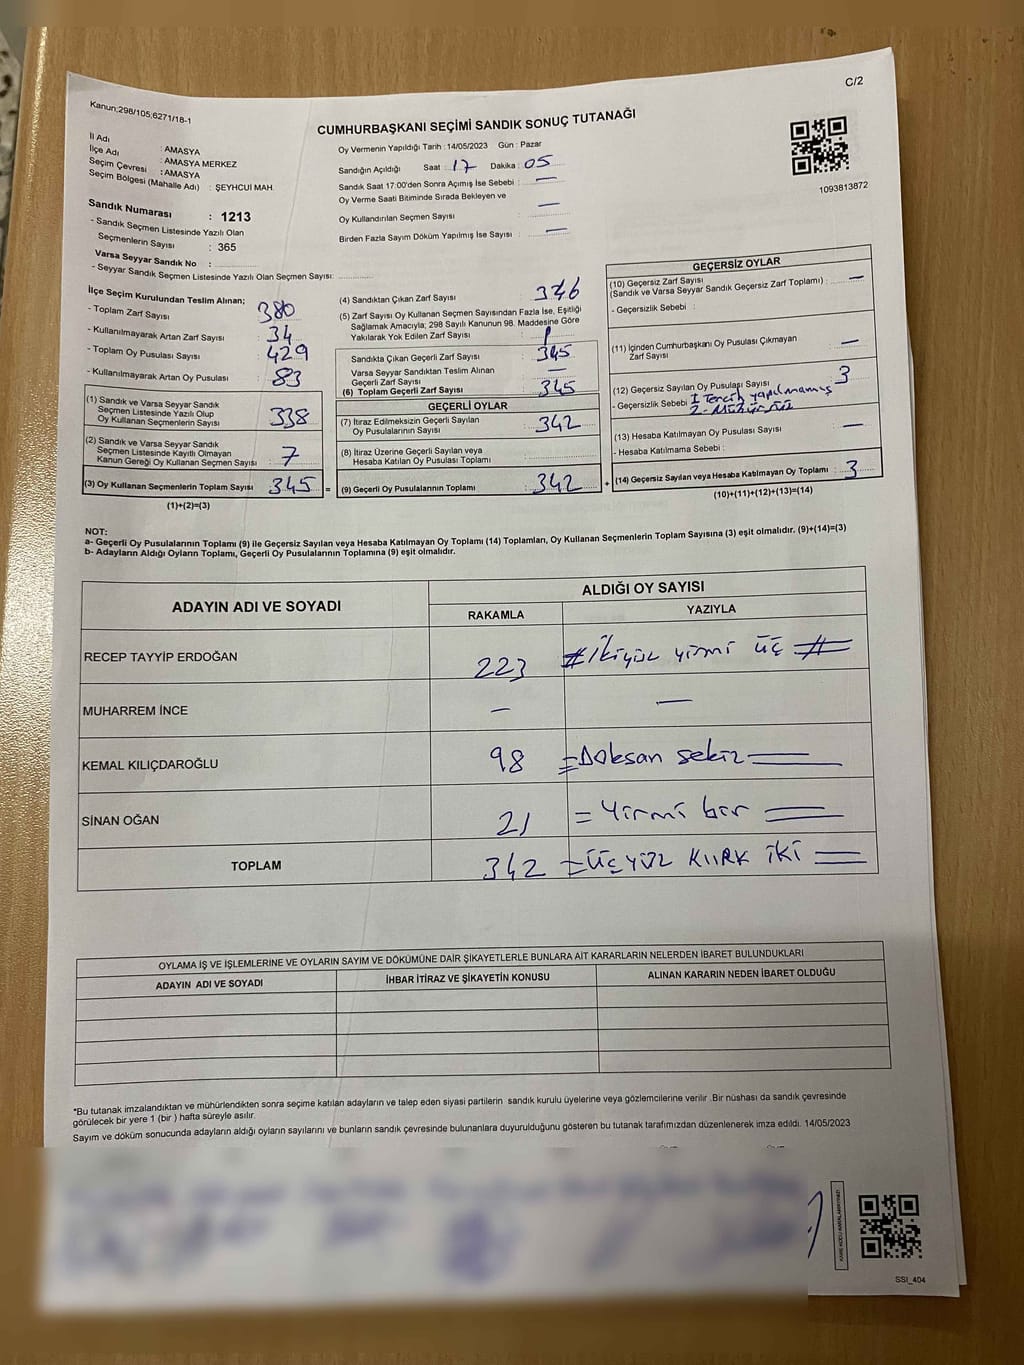 C/2
Kanun;298/105;6271/18-1
CUMHURBAŞKANI SEÇİMİ SANDIK SONUÇ TUTANAĞI
İl Adı : AMASYA
İlçe Adı : AMASYA MERKEZ
Seçim Çevresi : AMASYA
Seçim Bölgesi (Mahalle Adı) : ŞEYHCUİ MAH.
Sandık Numarası : 1213
- Sandık Seçmen Listesinde Yazılı Olan
Seçmenlerin Sayısı : 365
Varsa Seyyar Sandık No :
- Seyyar Sandık Seçmen Listesinde Yazılı Olan Seçmen Sayısı:
Oy Vermenin Yapıldığı Tarih : 14/05/2023 Gün : Pazar
Sandığın Açıldığı Saat : 17 Dakika : 05
Sandık Saat 17:00'den Sonra Açımış İse Sebebi : —
Oy Verme Saati Bitiminde Sırada Bekleyen ve
Oy Kullandırılan Seçmen Sayısı : —
Birden Fazla Sayım Döküm Yapılmış İse Sayısı : —
1093813872
İlçe Seçim Kurulundan Teslim Alınan;
- Toplam Zarf Sayısı : 380
- Kullanılmayarak Artan Zarf Sayısı : 34
- Toplam Oy Pusulası Sayısı : 429
- Kullanılmayarak Artan Oy Pusulası : 83
(1) Sandık ve Varsa Seyyar Sandık
Seçmen Listesinde Yazılı Olup
Oy Kullanan Seçmenlerin Sayısı : 338
(2) Sandık ve Varsa Seyyar Sandık
Seçmen Listesinde Kayıtlı Olmayan
Kanun Gereği Oy Kullanan Seçmen Sayısı : 7
(3) Oy Kullanan Seçmenlerin Toplam Sayısı : 345 =
(1)+(2)=(3)
(4) Sandıktan Çıkan Zarf Sayısı : 346
(5) Zarf Sayısı Oy Kullanan Seçmen Sayısından Fazla İse, Eşitliği
Sağlamak Amacıyla; 298 Sayılı Kanunun 98. Maddesine Göre
Yakılarak Yok Edilen Zarf Sayısı : 1
Sandıkta Çıkan Geçerli Zarf Sayısı : 345
Varsa Seyyar Sandıktan Teslim Alınan
Geçerli Zarf Sayısı : —
(6) Toplam Geçerli Zarf Sayısı : 345
GEÇERLİ OYLAR
(7) İtiraz Edilmeksizin Geçerli Sayılan
Oy Pusulalarının Sayısı : 342
(8) İtiraz Üzerine Geçerli Sayılan veya
Hesaba Katılan Oy Pusulası Toplamı :
(9) Geçerli Oy Pusulalarının Toplamı : 342 +
GEÇERSİZ OYLAR
(10) Geçersiz Zarf Sayısı
(Sandık ve Varsa Seyyar Sandık Geçersiz Zarf Toplamı) : —
- Geçersizlik Sebebi :
(11) İçinden Cumhurbaşkanı Oy Pusulası Çıkmayan
Zarf Sayısı : —
(12) Geçersiz Sayılan Oy Pusulası Sayısı : 3
- Geçersizlik Sebebi : 1 Tercih yapılmamış
2-
(13) Hesaba Katılmayan Oy Pusulası Sayısı : —
- Hesaba Katılmama Sebebi :
(14) Geçersiz Sayılan veya Hesaba Katılmayan Oy Toplamı : 3
(10)+(11)+(12)+(13)=(14)
NOT:
a- Geçerli Oy Pusulalarının Toplamı (9) ile Geçersiz Sayılan veya Hesaba Katılmayan Oy Toplamı (14) Toplamları, Oy Kullanan Seçmenlerin Toplam Sayısına (3) eşit olmalıdır. (9)+(14)=(3)
b- Adayların Aldığı Oyların Toplamı, Geçerli Oy Pusulalarının Toplamına (9) eşit olmalıdır.
ADAYIN ADI VE SOYADI
ALDIĞI OY SAYISI
RAKAMLA YAZIYLA
RECEP TAYYİP ERDOĞAN 223 # İkiyüz yirmi üç #
MUHARREM İNCE — —
KEMAL KILIÇDAROĞLU 98 = Doksan sekiz =
SİNAN OĞAN 21 = Yirmi bir =
TOPLAM 342 = üçyüz KIIRK iki =
OYLAMA İŞ VE İŞLEMLERİNE VE OYLARIN SAYIM VE DÖKÜMÜNE DAİR ŞİKAYETLERLE BUNLARA AİT KARARLARIN NELERDEN İBARET BULUNDUKLARI
ADAYIN ADI VE SOYADI İHBAR İTİRAZ VE ŞİKAYETİN KONUSU ALINAN KARARIN NEDEN İBARET OLDUĞU
*Bu tutanak imzalandıktan ve mühürlendikten sonra seçime katılan adayların ve talep eden siyasi partilerin sandık kurulu üyelerine veya gözlemcilerine verilir .Bir nüshası da sandık çevresinde
görülecek bir yere 1 (bir ) hafta süreyle asılır.
Sayım ve döküm sonucunda adayların aldığı oyların sayılarını ve bunların sandık çevresinde bulunanlara duyurulduğunu gösteren bu tutanak tarafımızdan düzenlenerek imza edildi. 14/05/2023
SSI_404